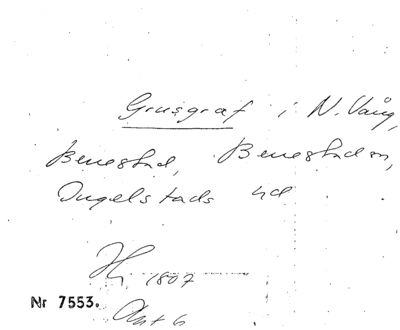 Grusgraf i N. Vång,
Benestad, Benestad sn,
Ingelstads hd.
1807
Nr 7553.